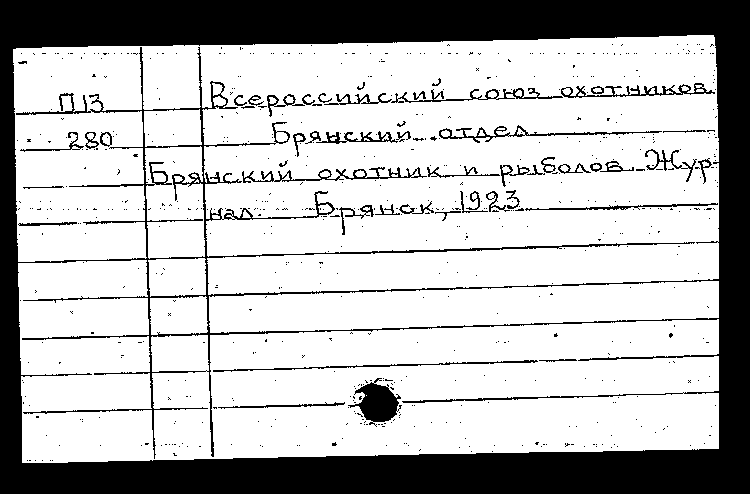 П13 Всероссийский союз охотников.
280 Брянский отдел.
Брянский охотник и рыболов. Жур-
нал. Брянск, 1923